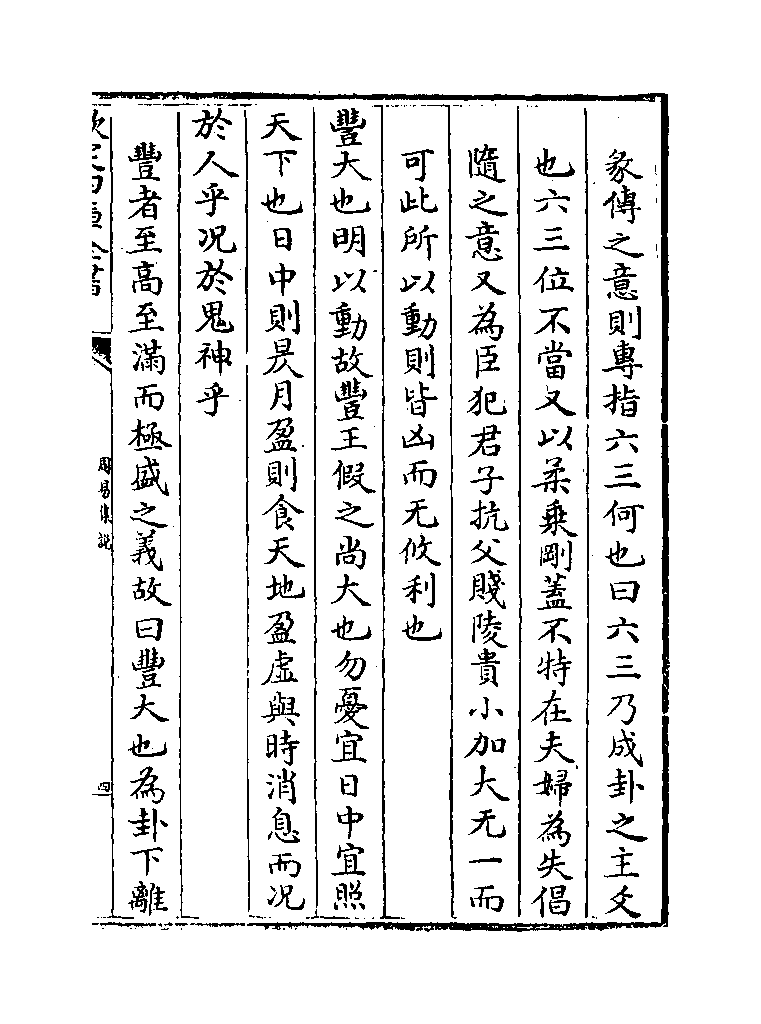 彖傳之意則專指六三何也曰六三乃成卦之主爻
也六三位不當又以柔乗剛蓋不特在夫婦為失倡
隨之意又為臣犯君子抗父賤陵貴小加大无一而
可此所以動則皆凶而无攸利也
豐大也明以動故豐王假之尚大也勿憂宜日中宜照
天下也日中則昃月盈則食天地盈虛與時消息而况
於人乎况於鬼神乎
豐者至高至滿而極盛之義故曰豐大也為卦下離
欽定四庫全書
周易集說
四